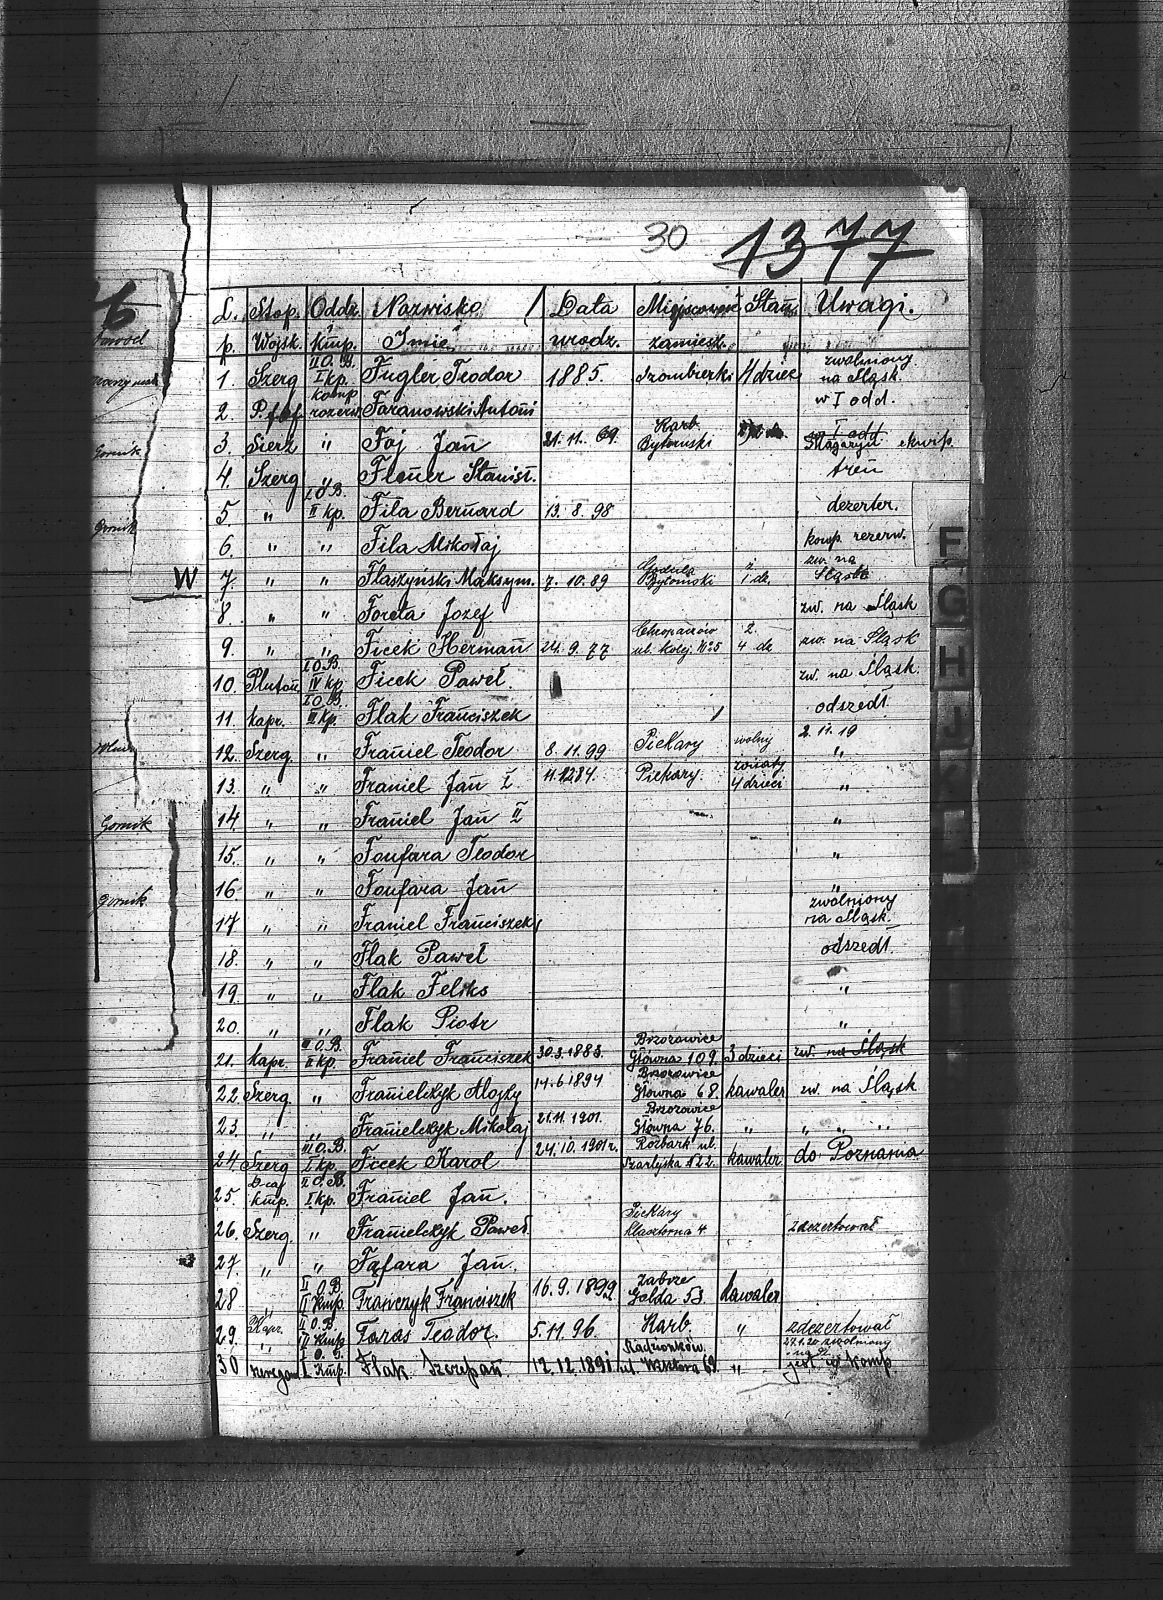 30 1377
L. p. Stop. Wojsk. Oddz. kmp. Nazwisko Imię Data urodz. Miejscowość zamieszk. Stan Uwagi.
1. Szerg II O.B. I kp. Fugler Teodor 1885. Szombierki 4 dziec zwolniony na Śląsk.
2. komp rezerw Faranowski Antoni w I odd.
3. Sierż " Faj Jan 21.11.69. Karb Bytomski Magazyn ekwip
4. Szerg " Fleuer Stanisł. tren
5 " I O.B. II kp. Fila Bernard 13.8.98 dezerter.
6. " " Fila Mikołaj komp. rezerw.
7. " " Flaszyński Maksym. 7.10.89 Godula Bytomski ż 1 dz. zw. na Śląsk
8 " " Foreta Jozef zw. na Śląsk
9. " " Ficek Herman 24.9.77 Chropaczów ul. kolej. No 5 ż. 4 dz zw. na Śląsk
10. Pluton I O.B. IV kp. Ficek Paweł. zw. na Śląsk.
11. kapr. I O.B. III kp. Flak Franciszek odszedł.
12. Szerg. " Franiel Teodor 8.11.99 Piekary wolny 2.11.19 "
13. " " Franiel Jan I 11.12.84 Piekary. żonaty 4 dzieci "
14 " " Franiel Jan II "
15. " " Fonfara Teodor "
16 " " Fonfara Jan "
17 " " Franiel Franciszek zwolniony na Śląsk.
18. " " Flak Paweł odszedł.
19. " " Flak Feliks "
20. " " Flak Piotr "
21. kapr. O.B. II kp. Franiel Franciszek 30.3.1883. Brzozowice Główna 109. 3 dzieci zw. na Śląsk
22. Szerg " Franielczyk Alojzy 14.6.1894 Brzozowice Główna 68. kawaler zw. na Śląsk
23. " " Franielczyk Mikołaj 21.11.1901. Brzozowice Główna 76. " " " "
24. Szerg III O.B. I kp. Ficek Karol 24.10.1901r. Rozbark ul. Szarlejska No 22. kawaler do Poznania
25. kmp. II O.B. I kp. Franiel Jan.
26. Szerg. " Franielczyk Paweł Piekary klasztorna 4 zdezertował
27. " " Fąfara Jan.
28 " II O.B II Kmp. Frańczyk Franciszek 16.9.1899 Zabrze Kawaler
29. Kapr. II O.B. III Kmp Faras Teodor. 5.11.96. Karb " zdezertował
30 szeregow I Kmp. Flak Szczepan. 12.12.1891 Radzionków. " 27.1.20 zwolniony jest w komp
F
G
H
J
W
Gornik
Gornik
Gornik
Gornik